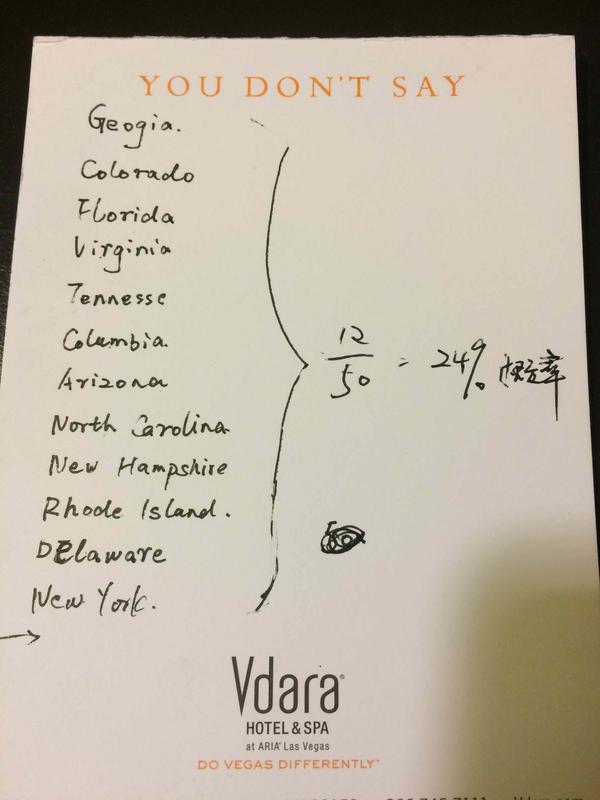 YOU DON'T SAY
Geogia.
Colorado
Florida
Virginia
Tennesse
Columbia
Arizona
North Carolina
New Hampshire
Rhode Island.
DElaware
New York.
12
50
= 24% 概率
Vdara®
HOTEL & SPA
at ARIA® Las Vegas
DO VEGAS DIFFERENTLY™